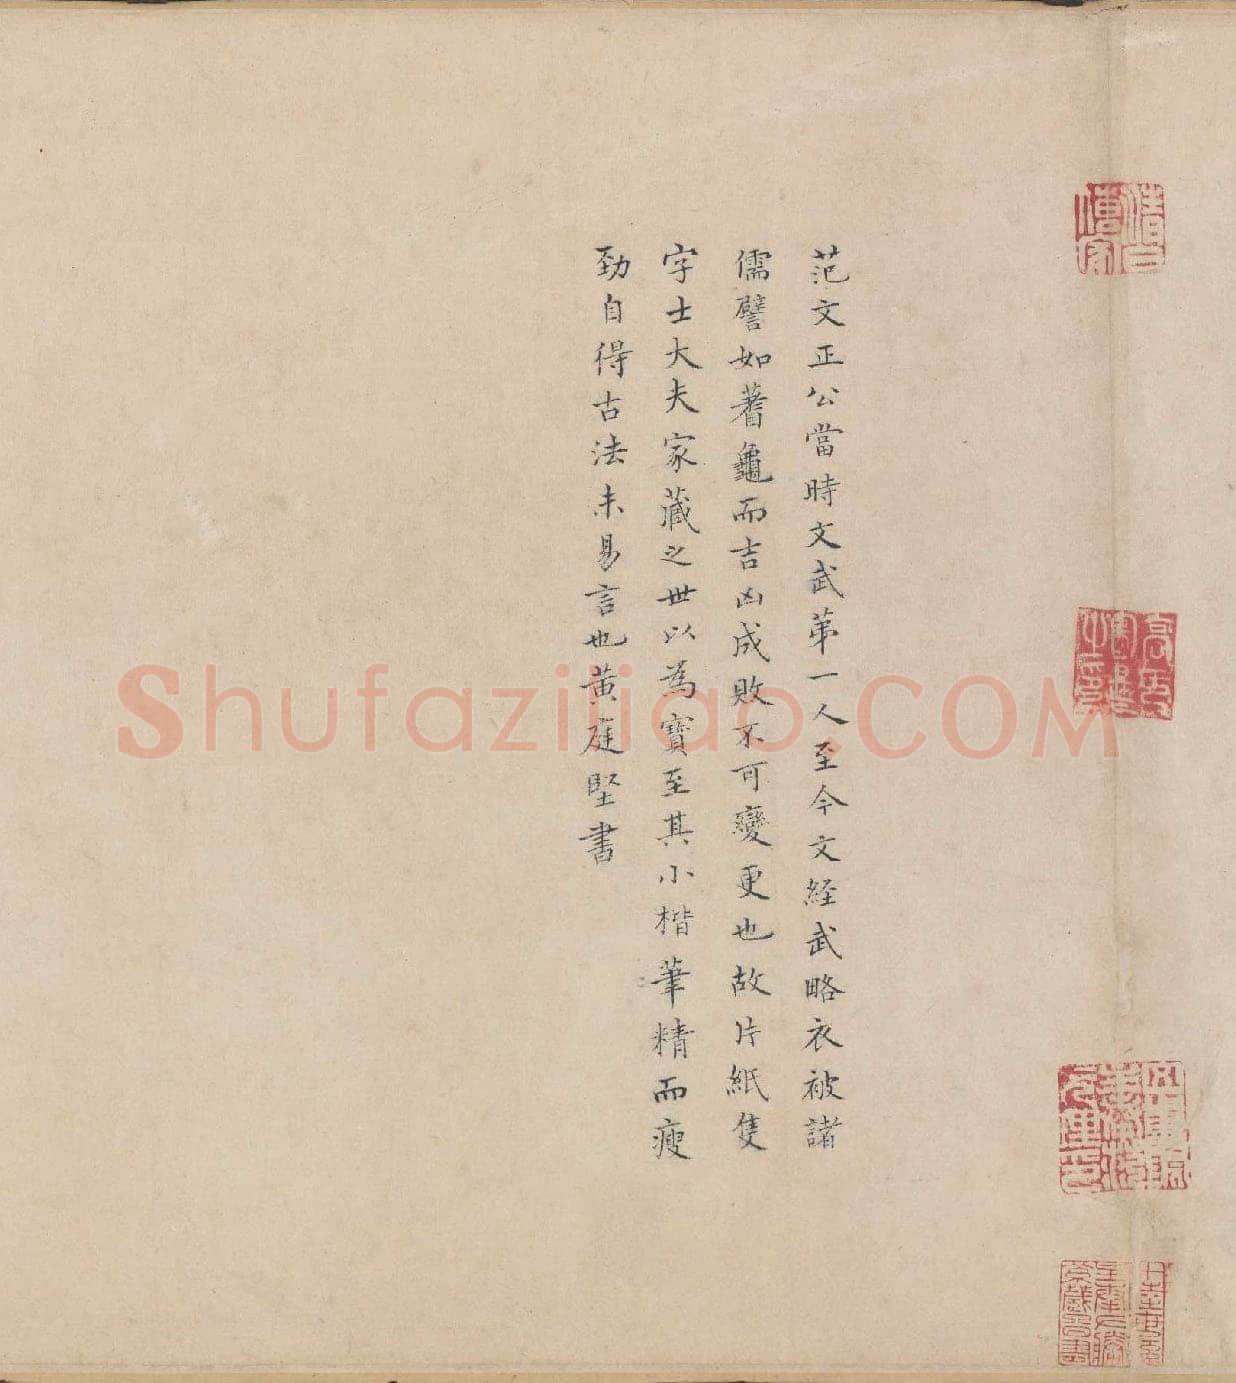 范文正公當時文武苐一人至今文経武略衣被諸
儒譬如蓍龜而吉凶成敗不可變更也故片紙隻
字士大夫家藏之世以為寳至其小楷筆精而瘦
勁自得古法未易言也黄庭堅書
Shufazijiao.COM